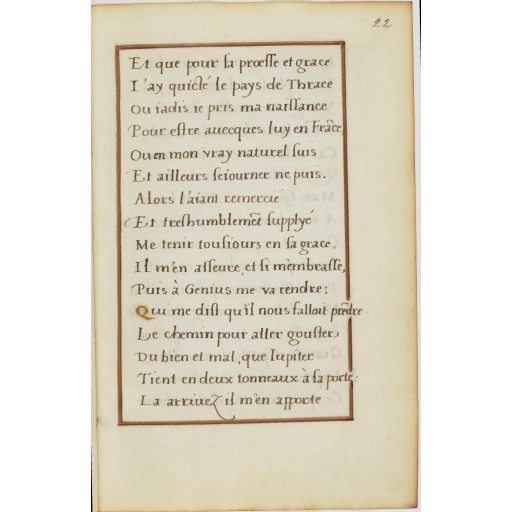 22
Et que pour sa proesse et grace
I'ay quicté le pays de Thrace
Ou iadis ie pris ma naissance
Pour estre auecques luy en Frãce,
Ou en mon vray naturel suis
Et ailleurs seiourner ne puis.
Alors l'aiant remercié
Et treshumblemẽt supplyé
Me tenir tousiours en sa grace,
Il m'en asseure, et si m'embrasse,
Puis à Genius me va rendre:
Qui me dist qu'il nous falloit prẽdre
Le chemin pour aller gouster
Du bien et mal, que Iupiter
Tient en deux tonneaux à sa porte:
La arriuez il m'en apporte